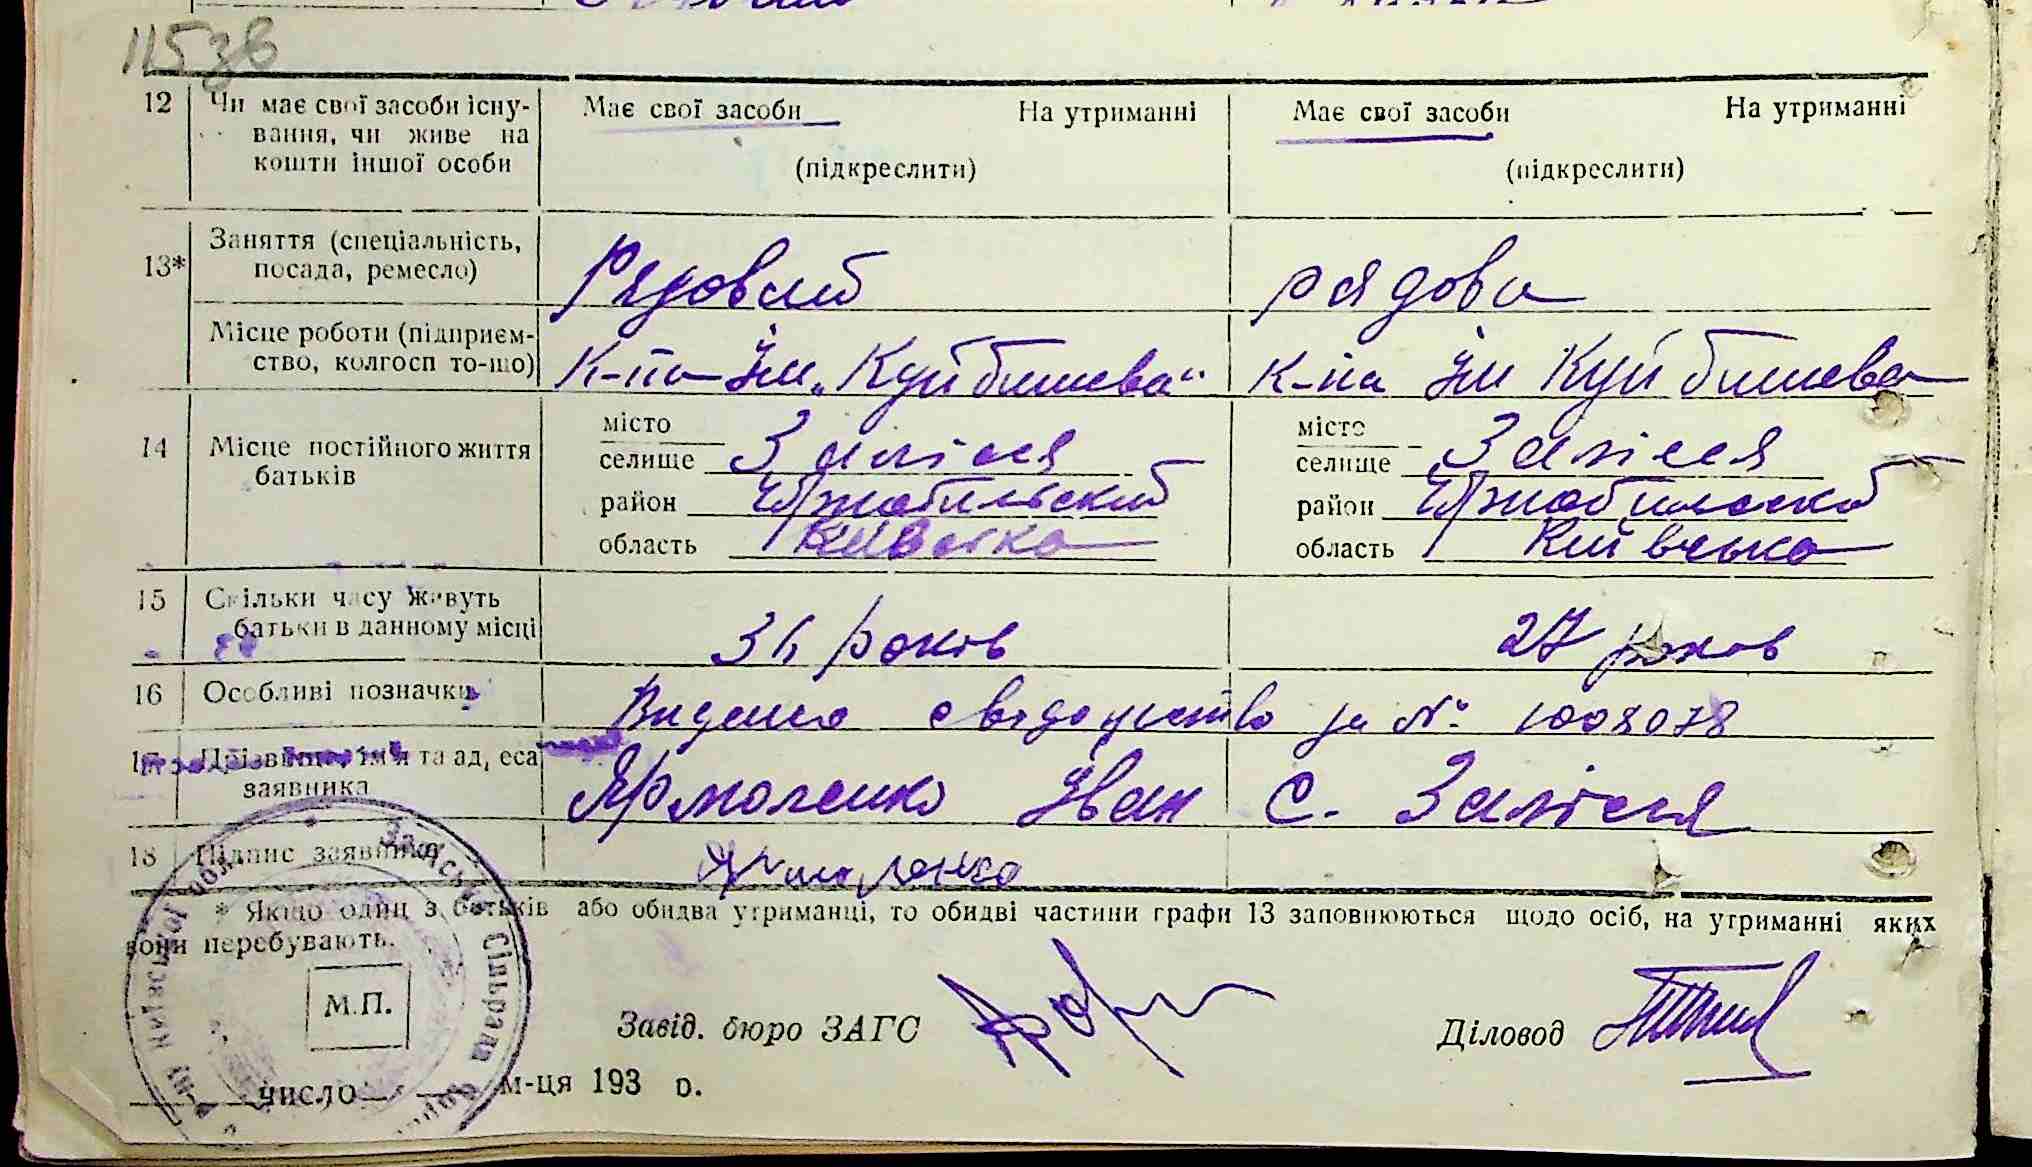 115зв
12 Чи має свої засоби існу- Має свої засоби На утриманні Має свої засоби На утриманні
вання, чи живе на
кошти іншої особи (підкреслити) (підкреслити)
13* Заняття (спеціальність, Рядовий рядова
посада, ремесло)
Місце роботи (підприєм-
ство, колгосп то-що) К-па Ім „Куйбишева“ к-па Ім Куйбишева
14 Місце постійного життя місто місто
батьків селище Залісся селище Залісся
район Чорнобильский район
область Київська область Київська
15 Скільки часу живуть
батьки в данному місці 31 років 27 років
16 Особливі позначки Видано свідоцтво за № 1008078
17 Прізвище, ім'я та адреса Ярмоленко Іван С. Залісся
заявника
18 Підпис заявника Ярмоленко
* Якщо один з батьків або обидва утриманці, то обидві частини графи 13 заповнюються щодо осіб, на утриманні яких
вони перебувають.
Заліська Сільрада
р-ну Київської обл.
М.П.
Завід. бюро ЗАГС Діловод
число м-ця 193 р.